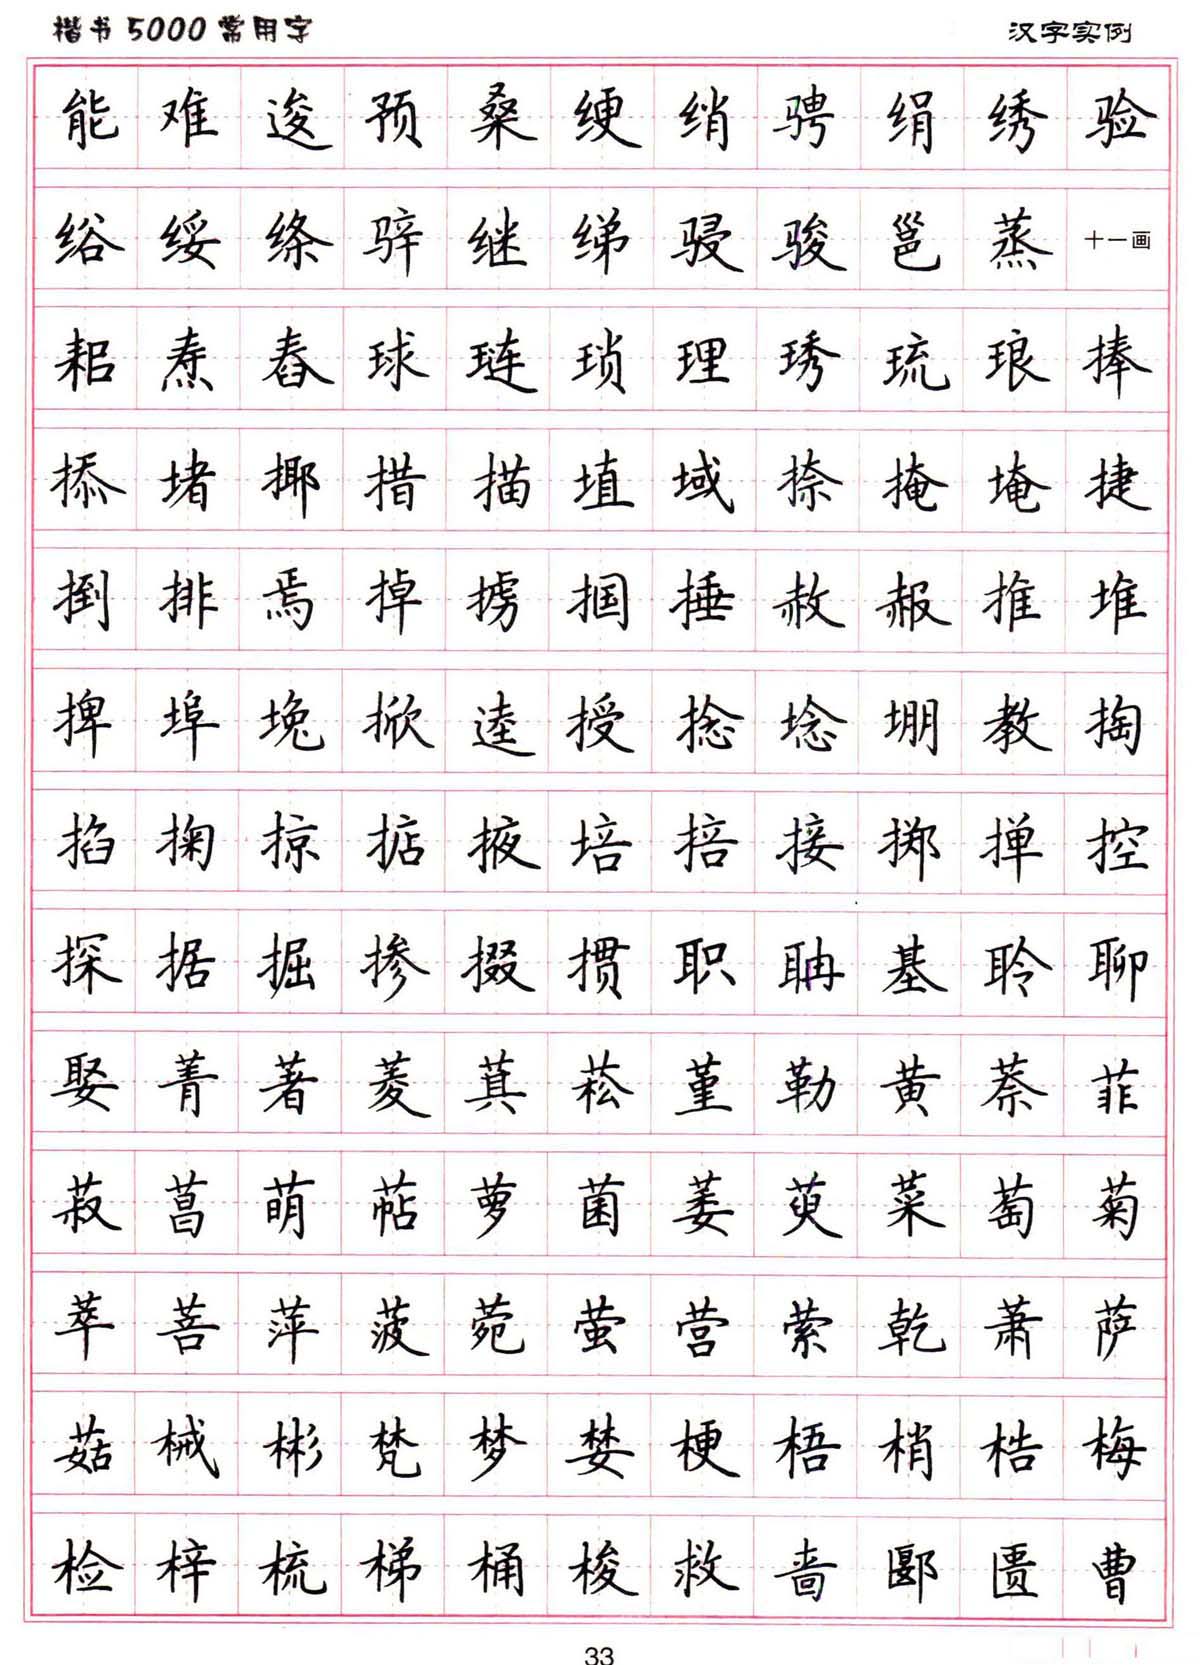 楷书5000常用字 汉字实例
能 难 逡 预 桑 绠 绡 骋 绢 绣 验
绤 绥 绦 骍 继 绨 骎 骏 邕 蒸 十一画
耜 焘 舂 球 琏 琐 理 琇 琉 琅 捧
掭 堵 揶 措 描 埴 域 捺 掩 埯 捷
捯 排 焉 掉 掳 掴 捶 赦 赧 推 堆
捭 埠 堍 掀 逵 授 捻 埝 堋 教 掏
掐 掬 掠 掂 掖 培 掊 接 掷 掸 控
探 据 掘 掺 掇 掼 职 聃 基 聆 聊
娶 菁 著 菱 萁 菘 堇 勒 黄 萘 菲
菽 菖 萌 萜 萝 菌 萎 萸 菜 萄 菊
萃 菩 萍 菠 菀 萤 营 萦 乾 萧 萨
菇 械 彬 梵 梦 婪 梗 梧 梢 梏 梅
检 梓 梳 梯 桶 梭 救 啬 郾 匮 曹
33